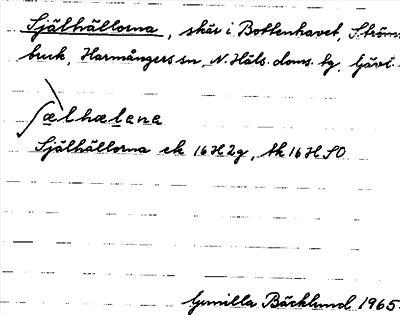 Själhällorna, skär i Bottenhavet, Ströms-
bruk, Harmångers sn, N. Häls. doms. tg, Gävl.
ʃælhæl̲ana
Själhällorna ek 16H2g, tk 16H SO
Gunilla Bäcklund 1965.